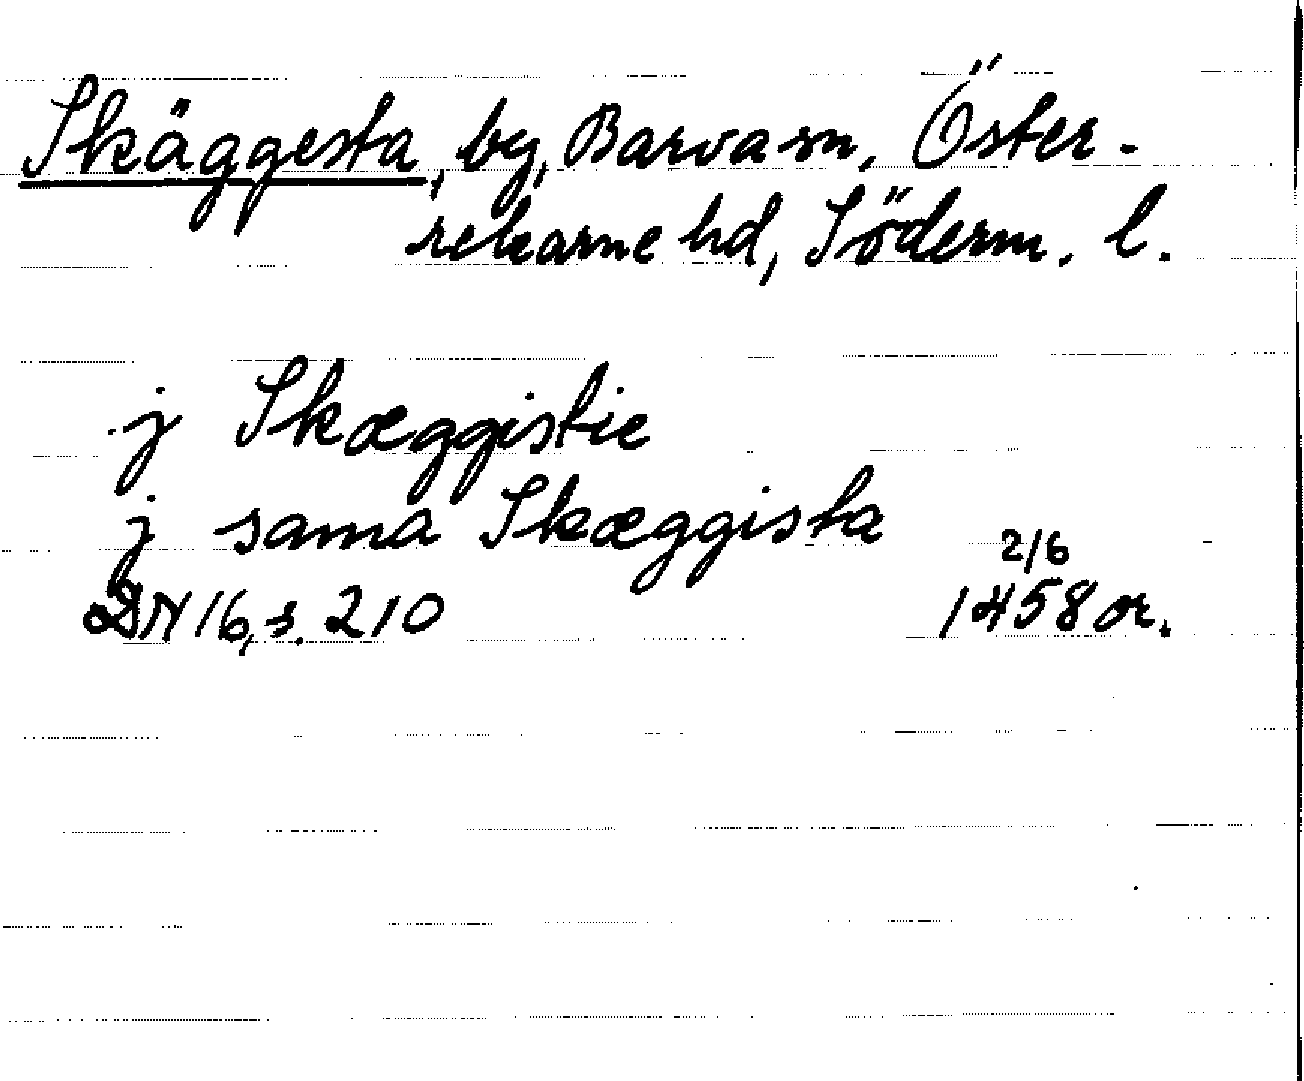 Skäggesta, by, Barva sn, Öster-
rekarne hd, Söderm. l.
j Skæggistie
j sama Skæggista
2/6
DN 16, s. 210 1458 or.